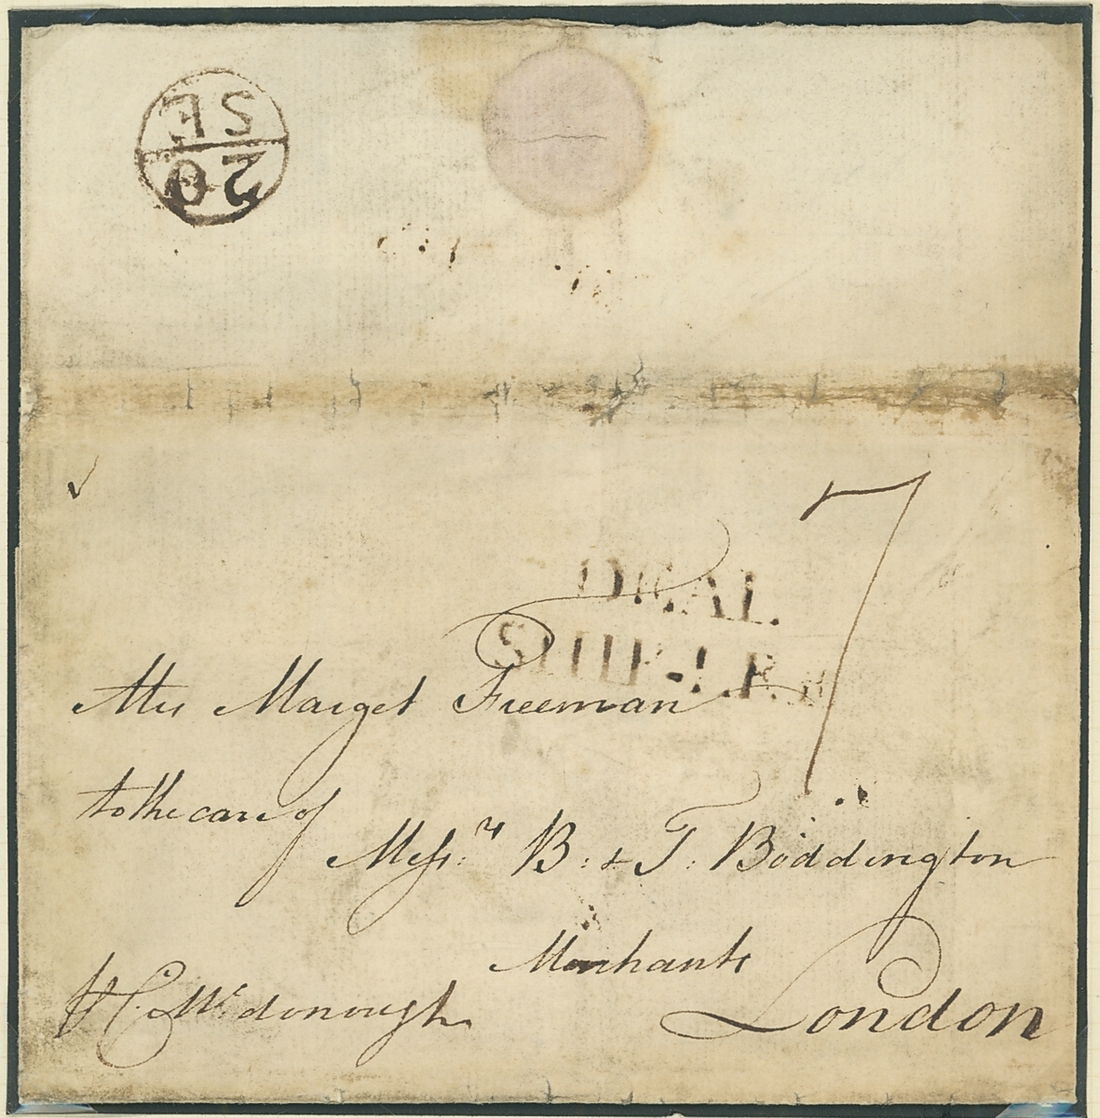 SE
20
7
DEAL
SHIP-LRE
Mrs Marget Freeman
to the care of
Messrs B: & T: Boddington
Merchants
London
p C. Mcdonough